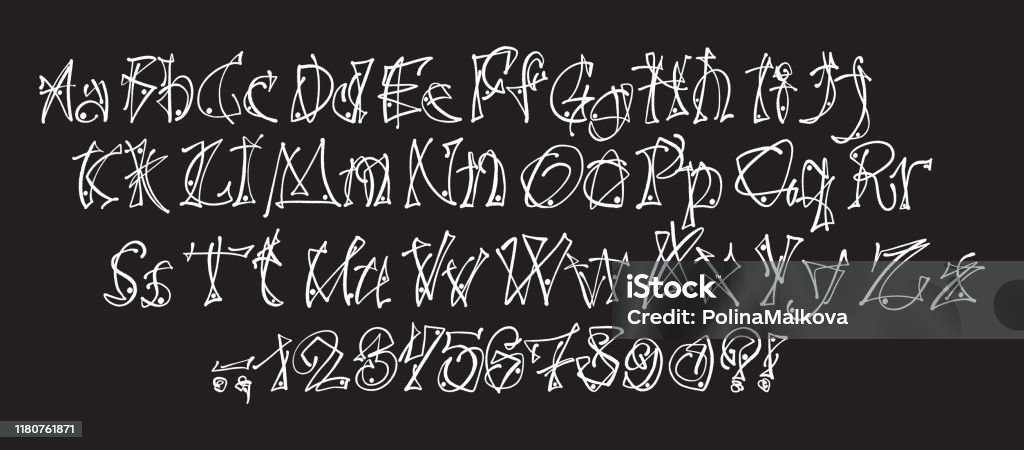 Aa Bb Cc Dd Ee Ff Gg Hh Ii Jj
Kk Ll Mm Nn Oo Pp Qq Rr
Ss Tt Uu Vv Ww Xx Yy Zz
iStock
Credit: PolinaMalkova
1234567890?!
1180761871